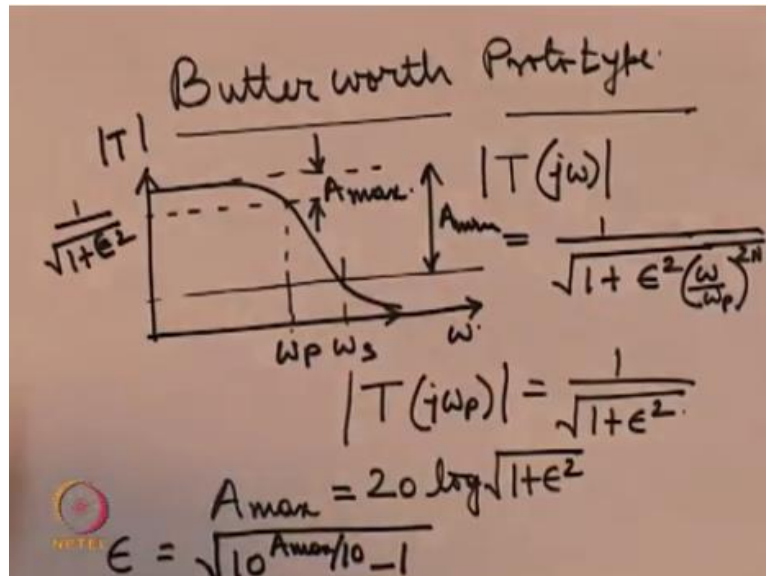 Butterworth Prototype.
|T|
1/√(1+ϵ²)
Amax.
Amin
ωp ωs ω
|T(jω)|
= 1/√(1+ϵ²(ω/ωp)^2N)
|T(jωp)| = 1/√(1+ϵ²)
Amax = 20 log √(1+ϵ²)
ϵ = √(10^(Amax/10) − 1)
NPTEL